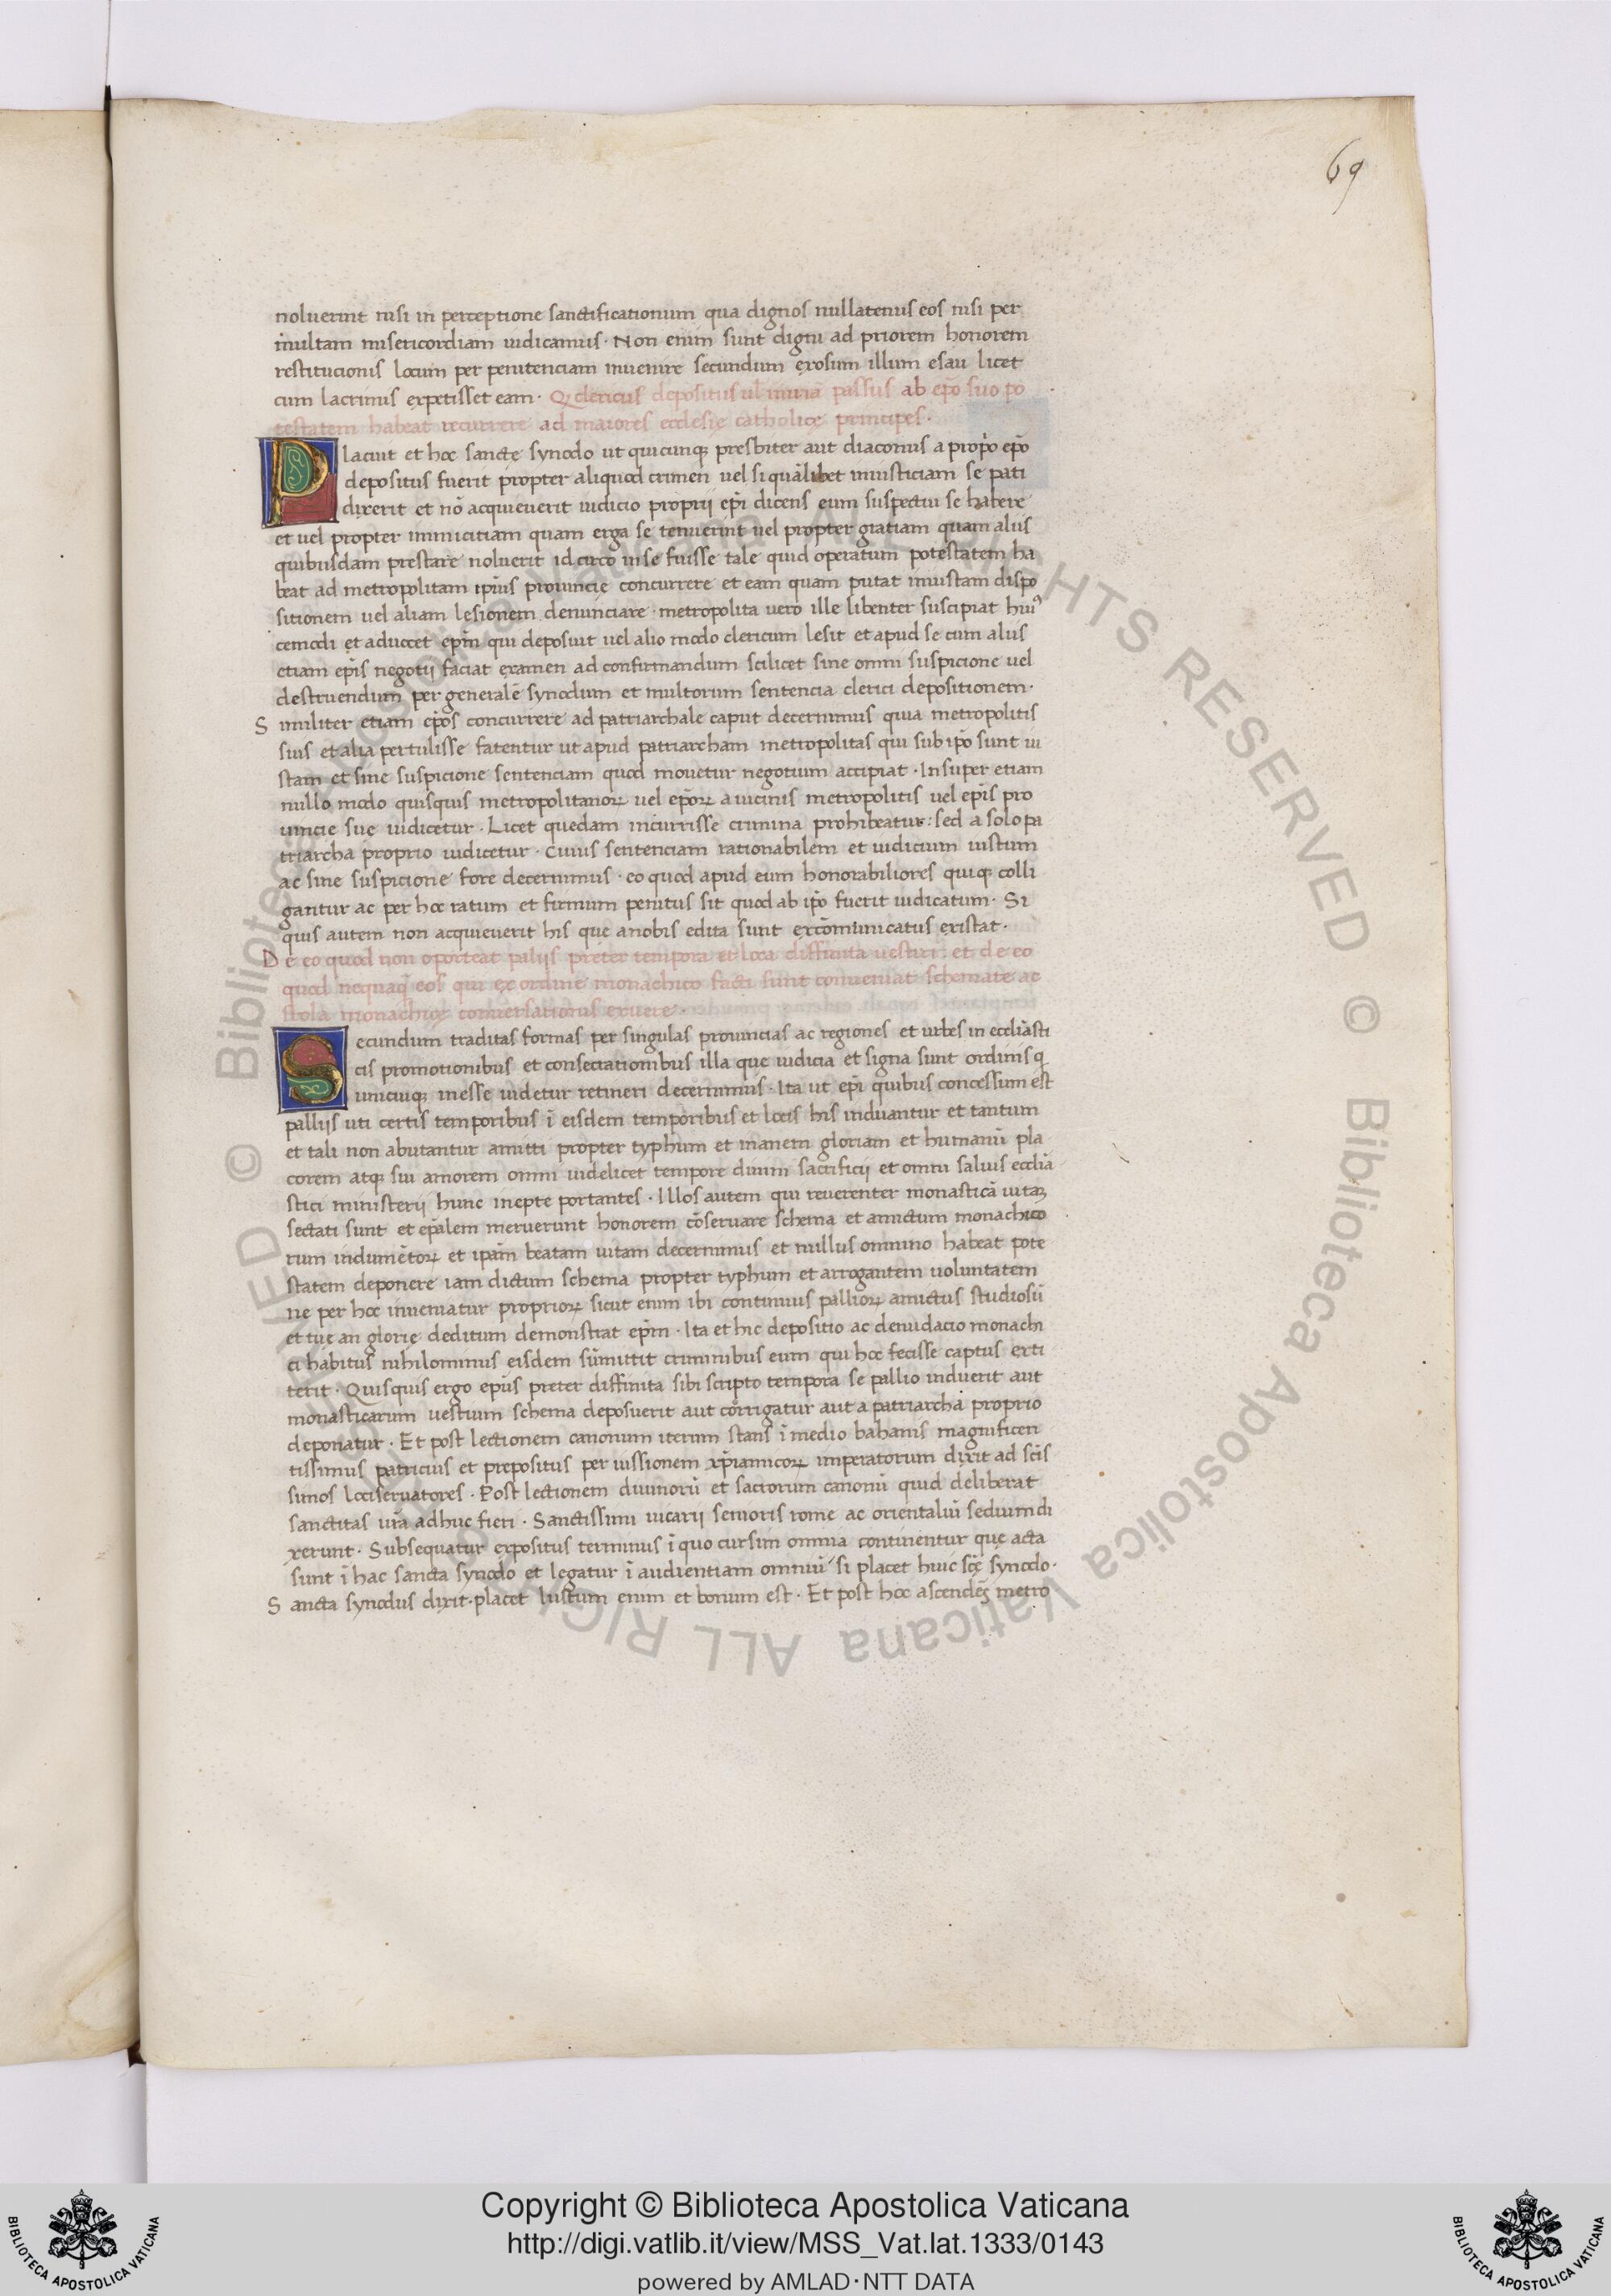 69
noluerint nisi in perceptione sanctificationum qua dignos nullatenus eos nisi per
multam misericordiam iudicamus · Non enim sunt digni ad priorem honorem
restitucionis locum per penitenciam invenire secundum exosum illum esau licet
cum lacrimis expetisset eam · Q clericus depositus ul iniuriā passus ab ep̄o suo po
testatem habeat recurrere ad maiores ecclesię catholicę principes ·
Placuit et hoc sanctę synodo ut quicunqꝫ presbiter aut diaconus a prop̄o ep̄o
depositus fuerit propter aliquod crimen vel si quālibet iniusticiam se pati
dixerit et nō acquieverit iudicio proprii ep̄i dicens eum suspectū se habere
et vel propter inimicitiam quam erga se tenuerint vel propter gratiam quam aliis
quibusdam prestare noluerit idcirco in se fuisse tale quid operatum potestatem ha
beat ad metropolitam ip̄ius provincię concurrere et eam quam putat iniustam dispo
sitionem vel aliam lesionem denunciare · metropolita vero ille libenter suscipiat huiꝰ
cemodi et advocet ep̄m qui deposuit vel alio modo clericum lesit et apud se cum aliis
etiam ep̄is negotii faciat examen ad confirmandum scilicet sine omni suspicione vel
destruendum per generalē synodum et multorum sentencia clerici depositionem ·
S imiliter etiam ep̄os concurrere ad patriarchale caput decernimus quia metropolitis
suis et alia pertulisse fatentur ut apud patriarcham metropolitas qui sub ip̄o sunt iu
stam et sine suspicione sentenciam quod movetur negotium accipiat · Insuper etiam
nullo modo quisquis metropolitanoꝝ vel ep̄oꝝ a vicinis metropolitis vel ep̄is pro
vincie sue iudicetur · Licet quedam incurrisse crimina prohibeatur : sed a solo pa
triarcha proprio iudicetur · Cuius sentenciam rationabilem et iudicium iustum
ac sine suspicione fore decernimus · eo quod apud eum honorabiliores quiqꝫ colli
gantur ac per hoc ratum et firmum penitus sit quod ab ip̄o fuerit iudicatum · Si
quis autem non acquieverit his que a nobis edita sunt excōmunicatus existat ·
D e eo quod non oporteat paliis preter tempora et loca diffinita vestiri : et de eo
quod nequaq̄ eos qui ex ordine monachico facti sunt conveniat schemate ac
stola monachice conversationis exuere ·
Secundum traditas formas per singulas provincias ac regiones et urbes in eccliasti
cis promotionibus et consecrationibus illa que iudicia et signa sunt ordinis q
unicuiqꝫ inesse videtur retineri decernimus · Ita ut ep̄i quibus concessum est
palliis uti certis temporibus ī eisdem temporibus et locis his induantur et tantum
et tali non abutantur amitti propter typhum et inanem gloriam et humanū pla
corem atqꝫ sui amorem omni videlicet tempore divini sacrificii et omni salvis ecclia
stici ministerii hunc inepte portantes · Illos autem qui reverenter monasticā vitaꝫ
sectati sunt et ep̄alem meruerunt honorem cōservare schema et amictum monachico
rum indumētoꝝ et ipam beatam vitam decernimus et nullus omnino habeat pote
statem deponere iam dictum schema propter typhum et arrogantem voluntatem
ne per hoc inveniatur proprioꝝ sicut enim ibi continuus pallioꝝ amictus studiosū
et tue an glorię deditum demonstrat ep̄m · Ita et hic depositio ac denudacio monachi
ci habitus nihilominus eisdem sūmittit criminibus eum qui hoc fecisse captus exti
terit · Quisquis ergo ep̄us preter diffinita sibi scripto tempora se pallio induerit aut
monasticarum vestium schema deposuerit aut corrigatur aut a patriarcha proprio
deponatur · Et post lectionem canonum iterum stans ī medio bahanis magnificen
tissimus patricius et prepositus per iussionem xp̄ianicoꝝ imperatorum dixit ad sc̄is
simos lociservatores · Post lectionem divinorū et sacrorum canonū quid deliberat
sanctitas vr̄a adhuc fieri · Sanctissimi vicarii senioris rome ac orientaliū sedium di
xerunt · Subsequatur expositus terminus ī quo cursim omnia continentur que acta
sunt ī hac sancta synodo et legatur ī audientiam omniū si placet huic sc̄ę synodo ·
S ancta synodus dixit · placet Iustum enim et bonum est · Et post hoc ascendēs metro
© Biblioteca Apostolica Vaticana ALL RIGHTS RESERVED
© Biblioteca Apostolica Vaticana ALL RIGHTS RESERVED
Copyright © Biblioteca Apostolica Vaticana
http://digi.vatlib.it/view/MSS_Vat.lat.1333/0143
powered by AMLAD·NTT DATA
BIBLIOTECA APOSTOLICA VATICANA
BIBLIOTECA APOSTOLICA VATICANA